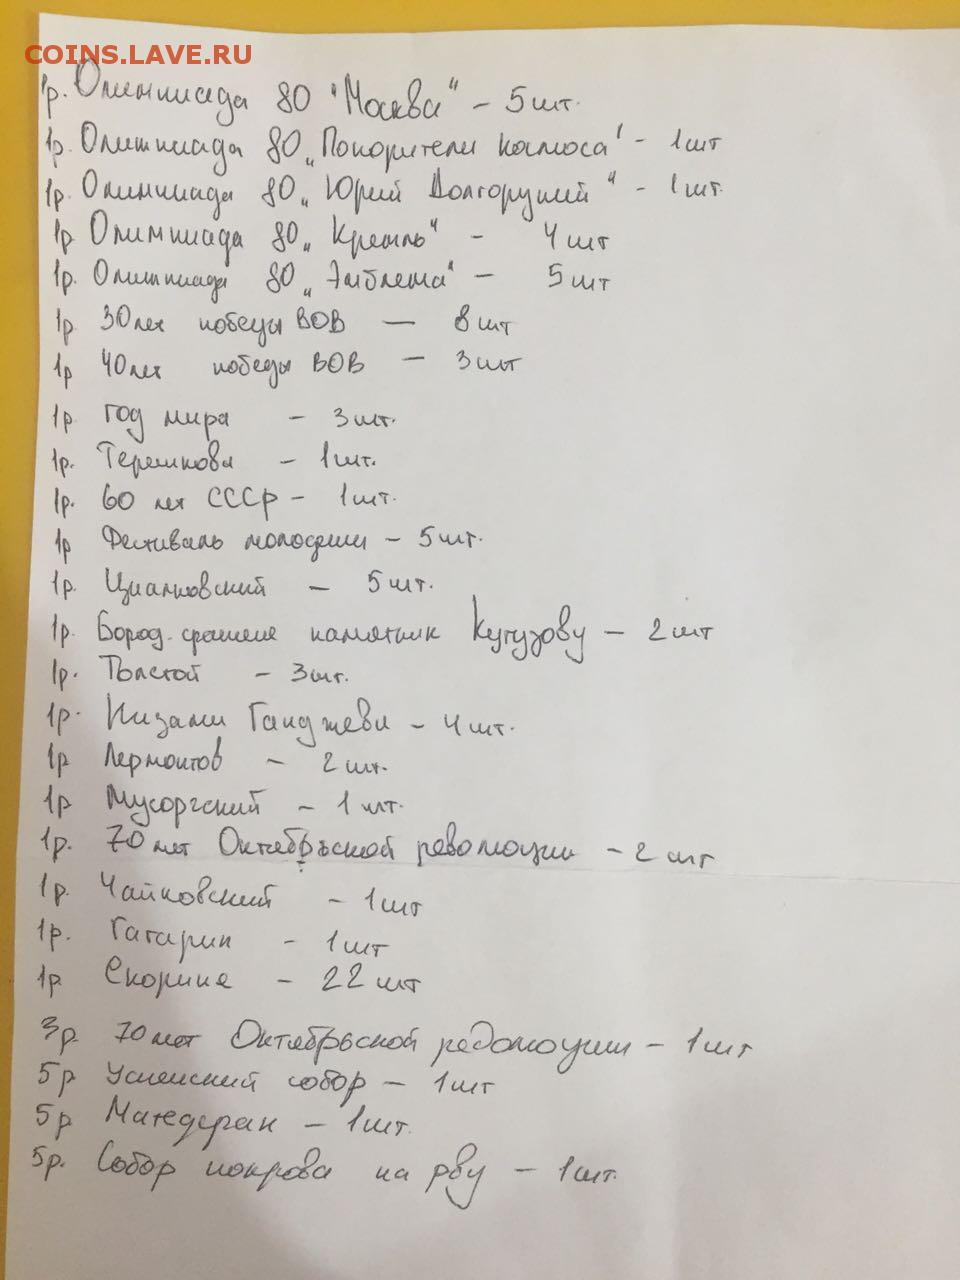 COINS.LAVE.RU
1р. Олимпиада 80 "Москва" - 5 шт.
1р. Олимпиада 80 „Покорители космоса' - 1 шт
1р. Олимпиада 80 „Юрий Долгорукий" - 1 шт.
1р Олимпиада 80 „Кремль" - 4 шт
1р. Олимпиада 80 „Эмблема" - 5 шт
1р 30 лет победы ВОВ — 8 шт
1р 40 лет победы ВОВ - 3 шт
1р. год мира - 3 шт.
1р. Терешкова - 1 шт.
1р. 60 лет СССР - 1 шт.
1р Фестиваль молодежи - 5 шт.
1р. Циалковский - 5 шт.
1р. Бород. сражение памятник Кутузову - 2 шт
1р. Толстой - 3 шт.
1р. Низами Гянджеви - 4 шт.
1р Лермонтов - 2 шт.
1р Мусоргский - 1 шт.
1р. 70 лет Октябрьской революции - 2 шт
1р. Чайковский - 1 шт
1р. Гагарин - 1 шт
1р Скорина - 22 шт
3р. 70 лет Октябрьской революции - 1 шт
5р Успенский собор - 1 шт
5р Матедеран - 1 шт.
5р. Собор покрова на рву - 1 шт.